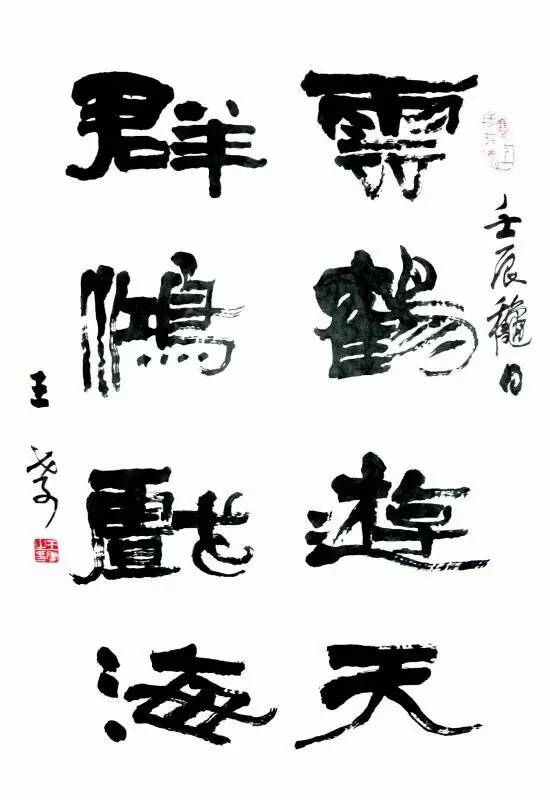 壬辰龝月
雲鶴遊天
群鴻戲海
王